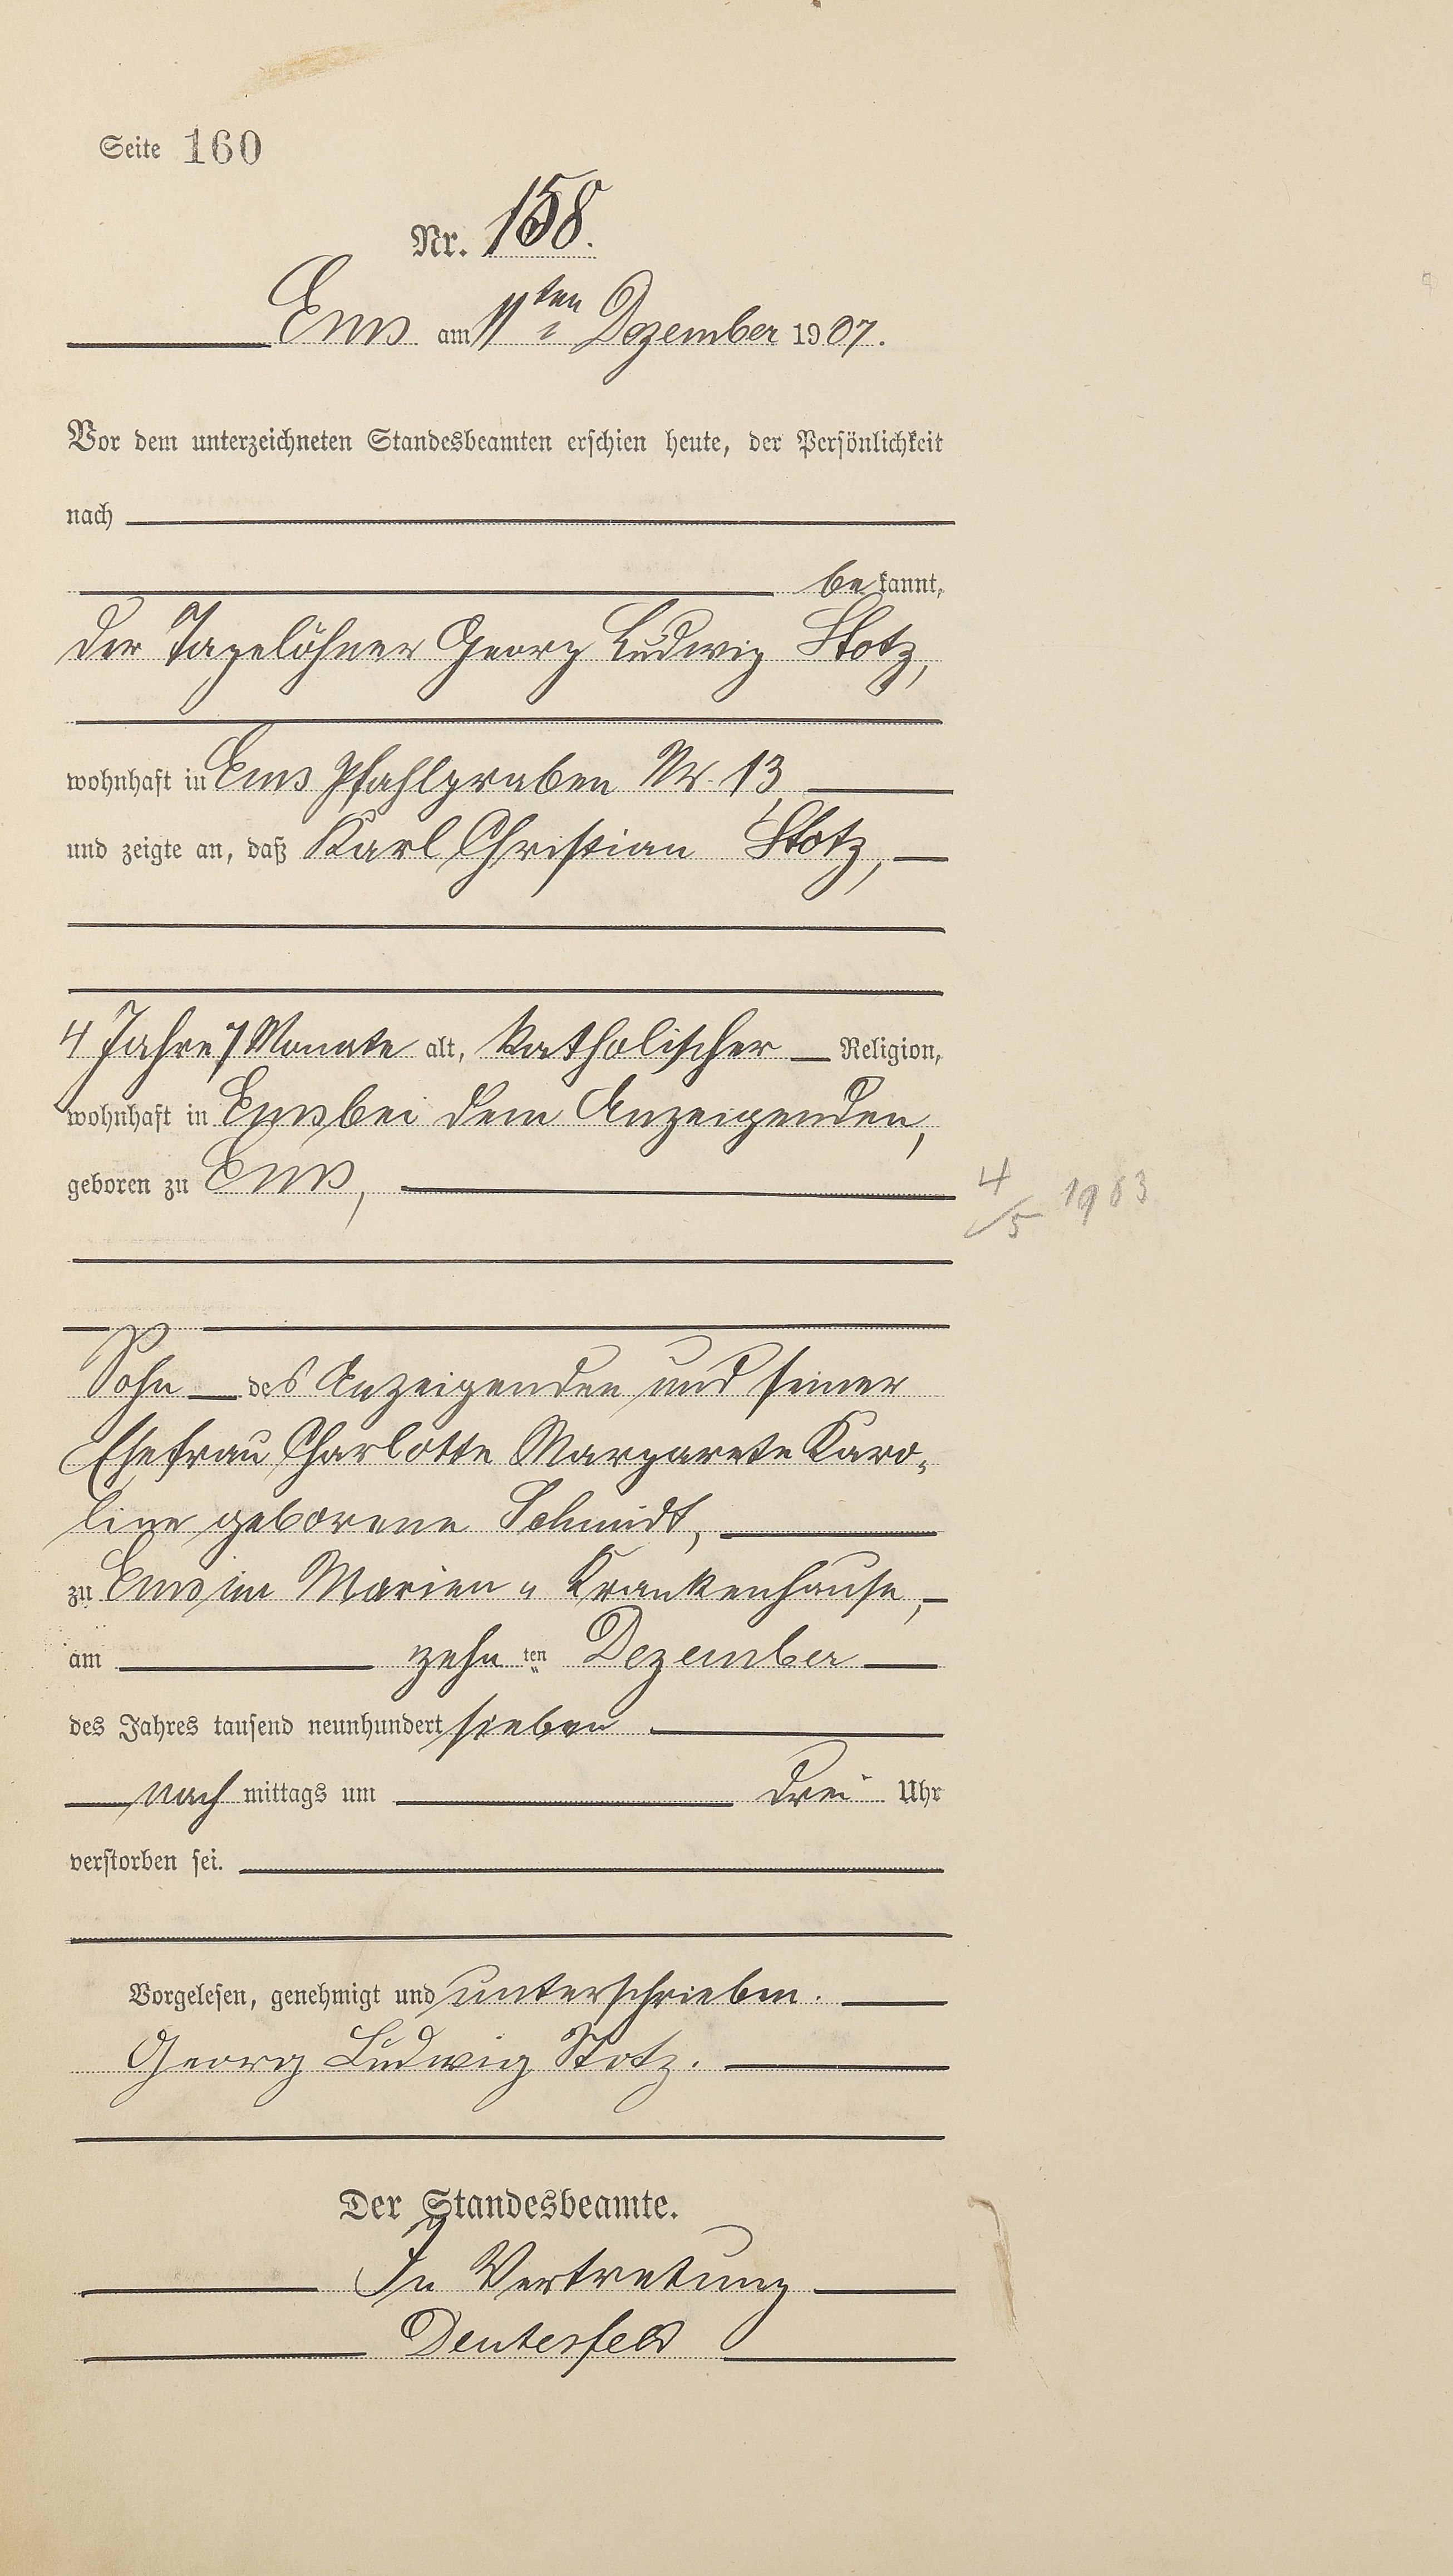 Seite 160
Nr. 158.
Ems am 11ten Dezember 1907.
Vor dem unterzeichneten Standesbeamten erschien heute, der Persönlichkeit
nach
bekannt,
der Tagelöhner Georg Ludwig Stotz,
wohnhaft in Ems Pfahlgraben Nr. 13,
und zeigte an, daß Karl Christian Stotz,
4 Jahre 7 Monate alt, katholischer Religion,
wohnhaft in Ems bei dem Anzeigenden,
geboren zu Ems,
4/5 1903
Sohn des Anzeigenden und seiner
Ehefrau Charlotte Margarete Karo-
line geborene Schmidt,
zu Ems im Marien-Krankenhause,
am zehnten Dezember
des Jahres tausend neunhundert sieben
nachmittags um drei Uhr
verstorben sei.
Vorgelesen, genehmigt und unterschrieben.
Georg Ludwig Stotz.
Der Standesbeamte.
In Vertretung